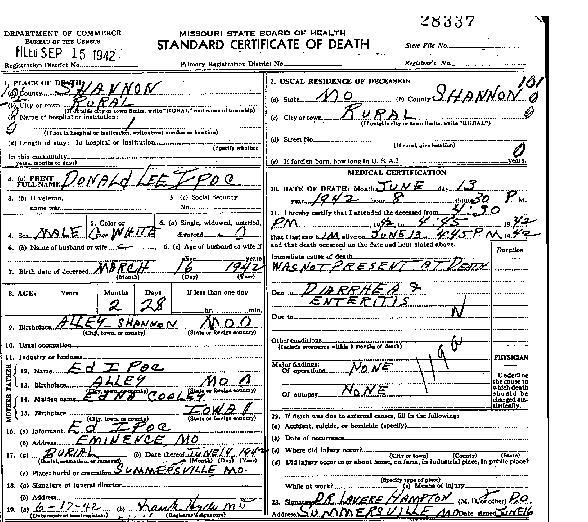 28337
DEPARTMENT OF COMMERCE
BUREAU OF THE CENSUS
MISSOURI STATE BOARD OF HEALTH
STANDARD CERTIFICATE OF DEATH
FILED SEP 15 1942
State File No.
Registration District No.
Primary Registration District No.
Registrar's No.
1. PLACE OF DEATH:
(a) County SHANNON
(b) City or town RURAL
(c) Name of hospital or institution:
(d) Length of stay: In hospital or institution
In this community
4. (a) PRINT FULL NAME DONALD LEE IPOC
3. (b) If veteran, name war
3. (c) Social Security No.
4. Sex MALE
5. Color or WHITE
6. (a) Single, widowed, married, divorced
6. (b) Name of husband or wife
6. (c) Age of husband or wife if
7. Birth date of deceased MARCH 16 1942
(Month) (Day) (Year)
8. AGE: Years Months Days If less than one day
2 28 hr. min.
9. Birthplace ALLEY SHANNON MO
10. Usual occupation
11. Industry or business
MOTHER FATHER
12. Name Ed IPOC
13. Birthplace ALLEY MO
14. Maiden name EDNA COOLEY
15. Birthplace IOWA
16. (a) Informant Ed IPOC
(b) Address EMINENCE MO
17. (a) BURIAL (b) Date thereof JUNE 14, 1942
(c) Place: burial or cremation SUMMERSVILLE MO.
18. (a) Signature of funeral director
(b) Address
19. (a) 6-17-42 (b)
2. USUAL RESIDENCE OF DECEASED 101
(a) State MO (b) County SHANNON
(c) City or town RURAL
(d) Street No.
(e) If foreign born, how long in U. S. A.? years.
MEDICAL CERTIFICATION
20. DATE OF DEATH: Month JUNE day 13
year 1942 hour 8 minute 30 P M.
21. I hereby certify that I attended the deceased from 4:30
PM 1942 to 4:45 1942
that I last saw him alive on JUNE 13, 4:45 PM 1942
and that death occurred on the date and hour stated above.
Duration
Immediate cause of death
WAS NOT PRESENT AT DEATH
Due to DIARRHEA &
ENTERITIS
Due to
Other conditions
Major findings:
Of operations NONE
Of autopsy NONE
PHYSICIAN
Underline the cause to which death should be charged statistically.
22. If death was due to external causes, fill in the following:
(a) Accident, suicide, or homicide (specify)
(b) Date of occurrence
(c) Where did injury occur?
(City or town) (County) (State)
(d) Did injury occur in or about home, on farm, in industrial place, in public place?
(Specify type of place)
While at work? (e) Means of injury
23. Signature DR. LAVERE HAMPTON D.O.
Address SUMMERSVILLE MO Date signed JUNE 16